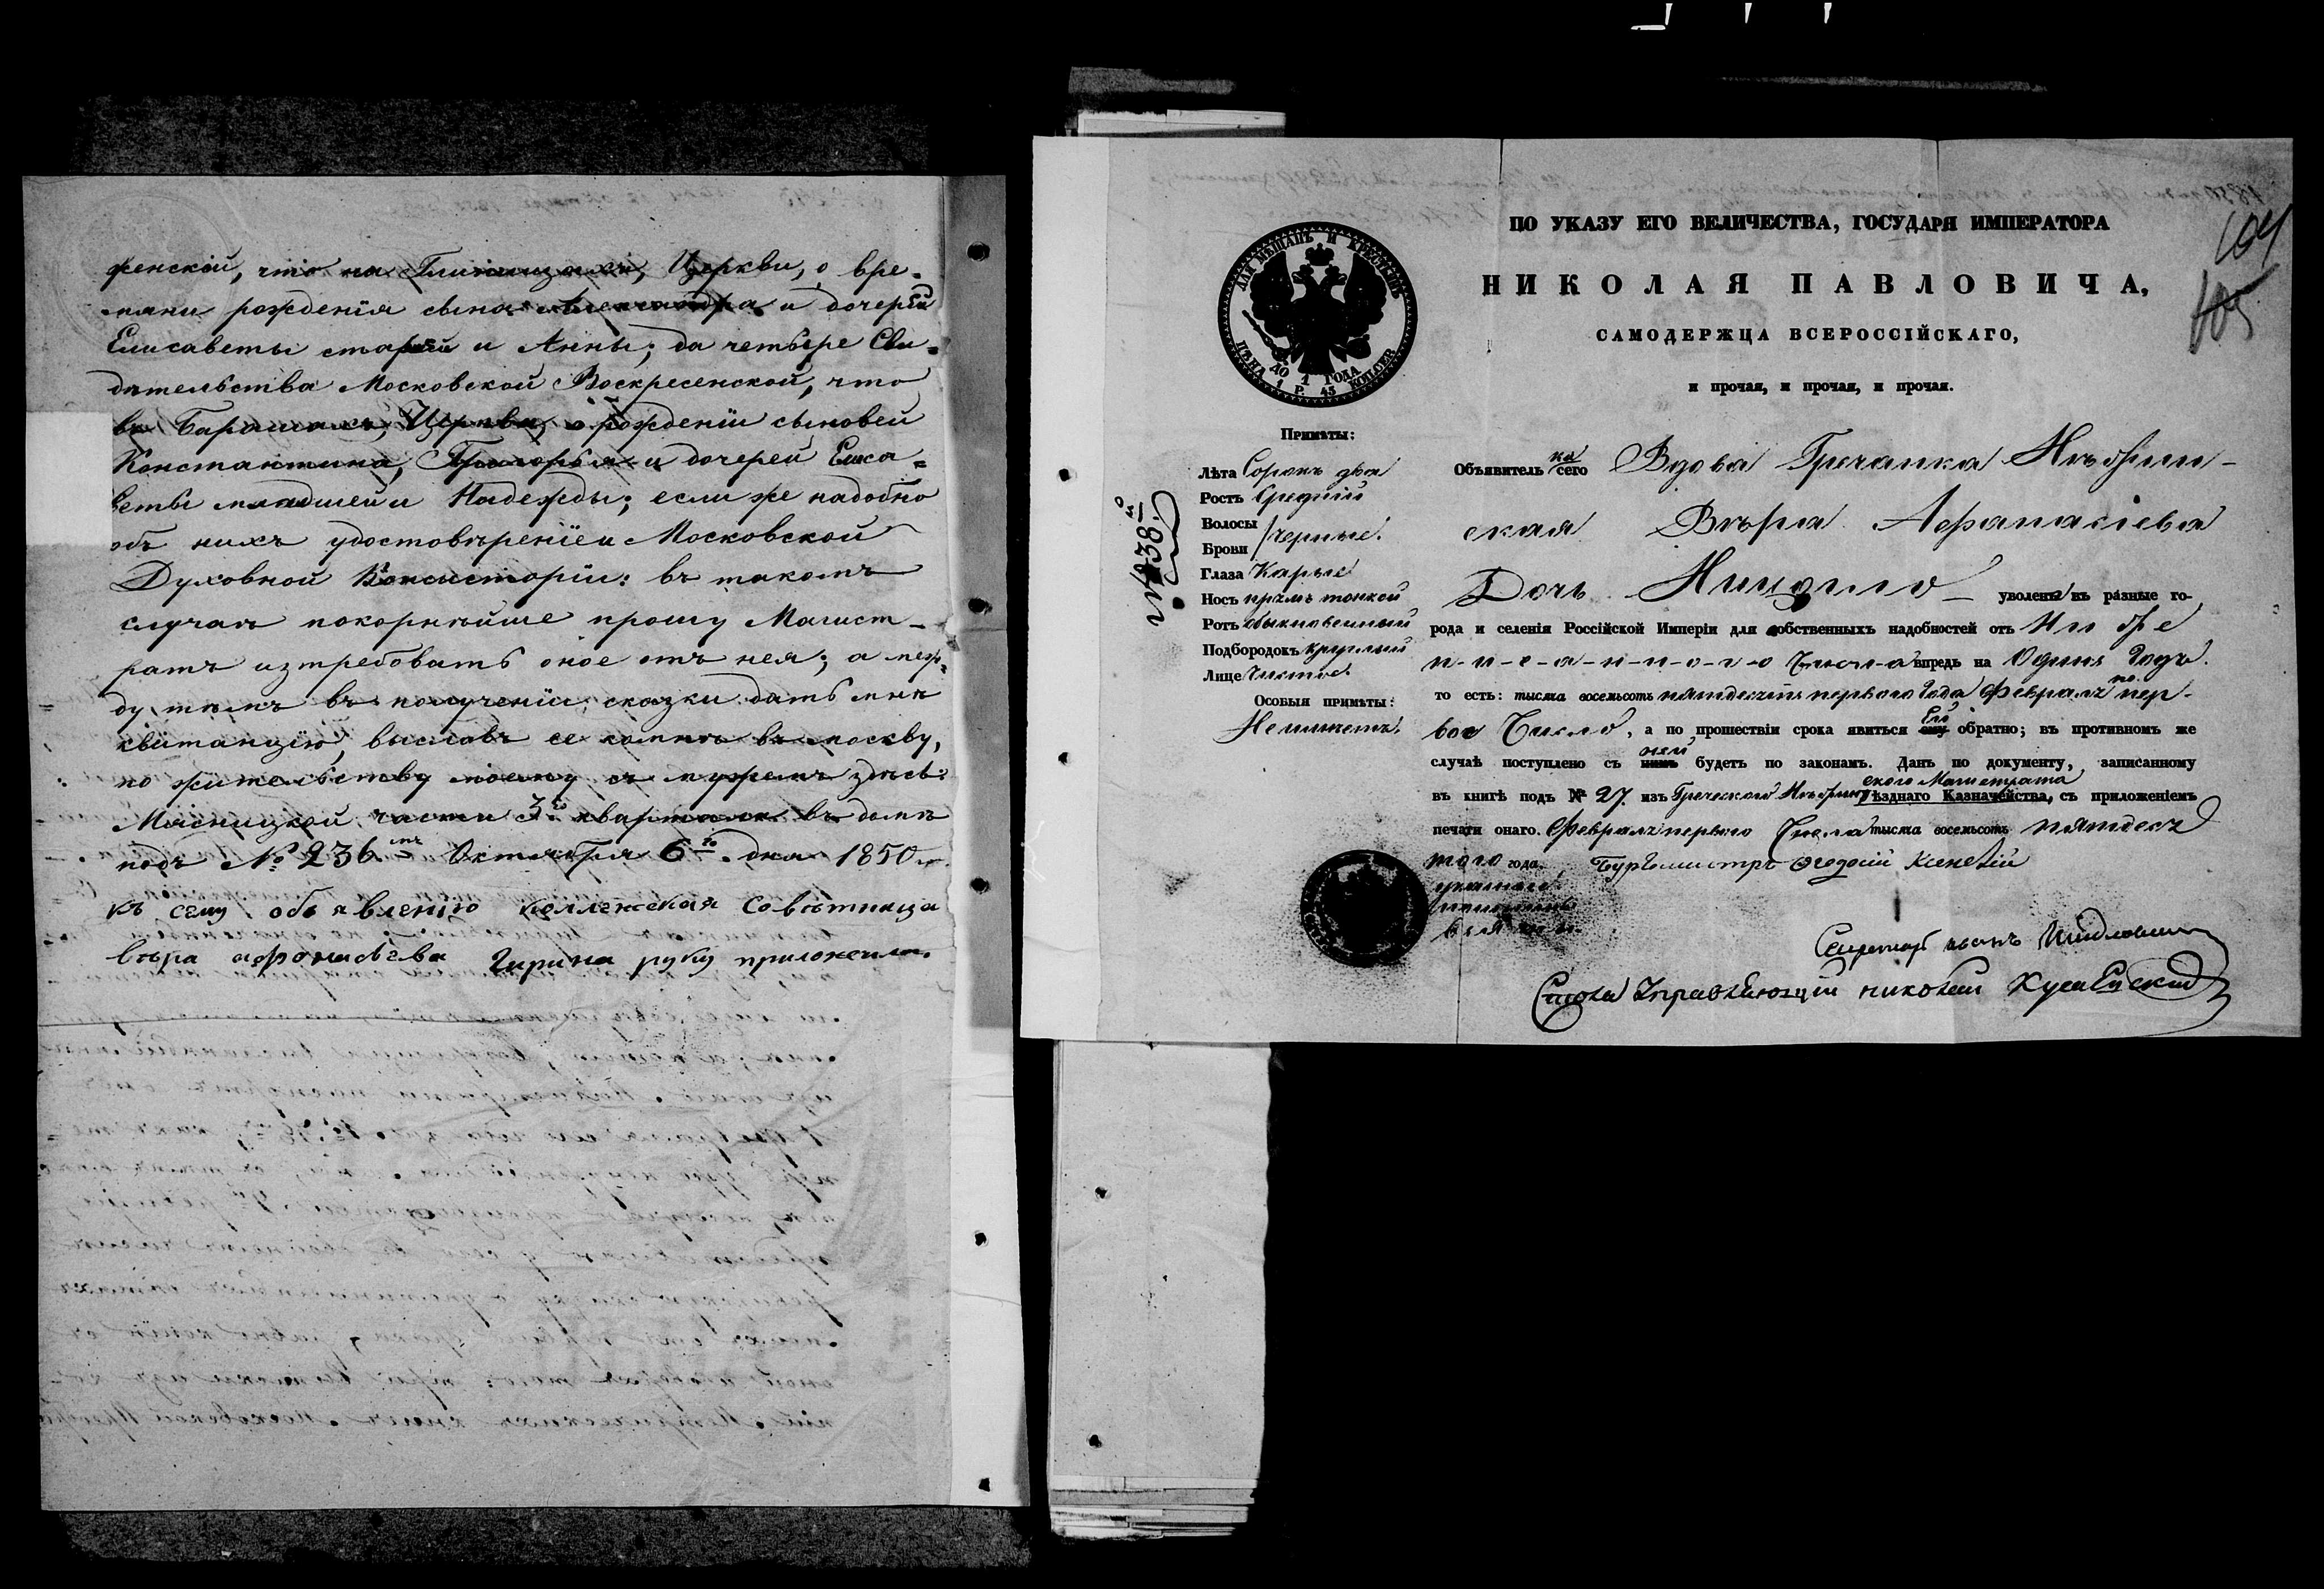 женской, что на Глинищахъ, Церкви, о вре-
мяни рожденія сына Александра и дочерей
Елисаветы старшей и Анны; да четыре Сви-
дѣтельства Московской Воскресенской, что
въ Барашахъ, Церкви, о рожденіи сыновей
Константина, Григорья и дочерей Елиса-
веты младшей и Надежды; если же надобно
объ нихъ удостовѣреніе и Московской
Духовной Консисторіи: въ такомъ
случаѣ покорнѣйше прошу Магист-
ратъ изтребовать оное отъ нея; а меж-
ду тѣмъ въ полученіи сказки дать мнѣ
квитанцію, выславъ ее ко мнѣ въ Москву,
по жительству моему съ мужемъ здѣсь:
Мясницкой части 3го квартала въ домѣ
подъ № 236мъ Октября 6го дня 1850 г.
къ сему объявленію коллежская Совѣтница
вѣра афонасьева Гирина руку приложила.
104
105
ПО УКАЗУ ЕГО ВЕЛИЧЕСТВА, ГОСУДАРЯ ИМПЕРАТОРА
НИКОЛАЯ ПАВЛОВИЧА,
САМОДЕРЖЦА ВСЕРОССІЙСКАГО,
и прочая, и прочая, и прочая.
ДЛЯ МѢЩАНЪ И КРЕСТЬЯНЪ
ДО 1 ГОДА
ЦѢНА 1 Р. 45 КОП. СЕР.
Примѣты:
Лѣта Сорокъ два
Ростъ Средній
Волосы
Брови черные.
Глаза Карые
Носъ прямъ тонкой
Ротъ обыкновенный
Подбородокъ круглый
Лице Чистое.
Особыя примѣты:
Неимѣетъ.
Объявитель ка сего Вдова Гречанка Нѣжин-
ская Вѣра Афанасіева
Дочь уволена въ разные го-
рода и селенія Россійской Имперіи для собственныхъ надобностей отъ Ни же
п-и-с-а-н-н-о-г-о Числа впредь на Одинъ Годъ.
то есть: тысяча восемьсотъ пятьдесятъ перваго Года Февраля по пер-
вое Число, а по прошествіи срока явиться ему Ей обратно; въ противномъ же
случаѣ поступлено съ нимъ ней будетъ по законамъ. Данъ по документу, записанному
въ книгѣ подъ № 27. изъ Греческого Нѣжинского Магистрата Уѣзднаго Казначейства, съ приложеніемъ
печати онаго. Февраля перваго Числа тысяча восемьсотъ пятьдеся
того года. Бургомистръ Феодосій
Секретарь
Стола Управляющій николай